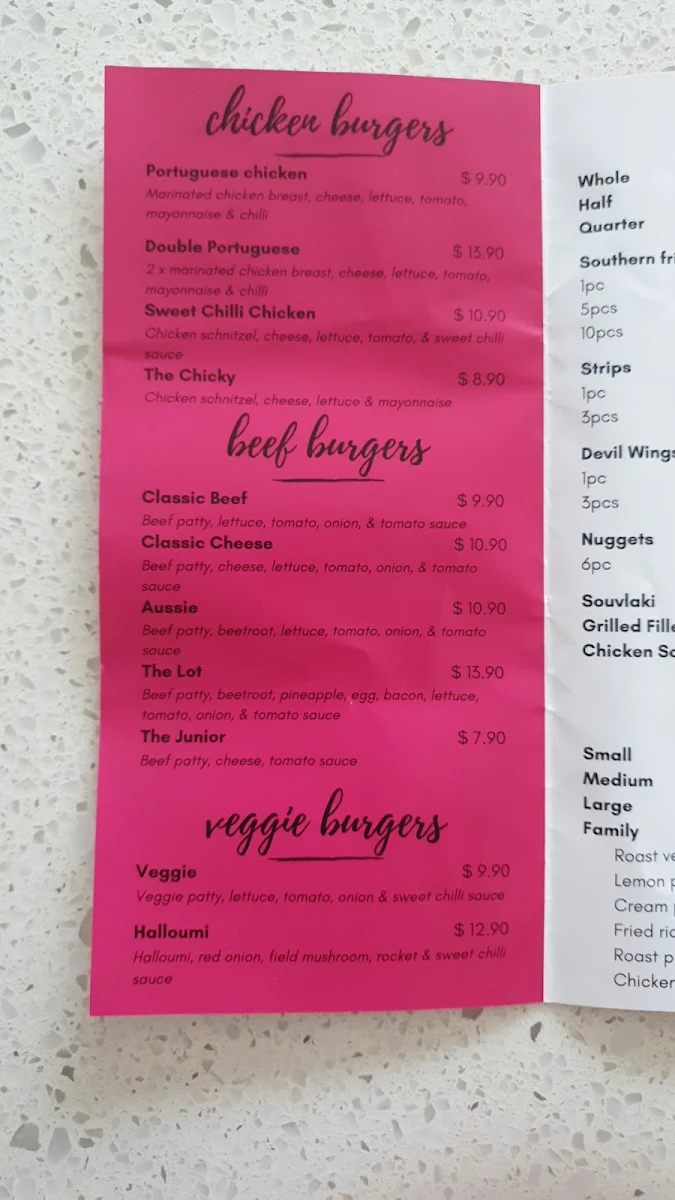 chicken burgers
Portuguese chicken $ 9.90
Marinated chicken breast, cheese, lettuce, tomato,
mayonnaise & chilli
Double Portuguese $ 13.90
2 x marinated chicken breast, cheese, lettuce, tomato,
mayonnaise & chilli
Sweet Chilli Chicken $ 10.90
Chicken schnitzel, cheese, lettuce, tomato, & sweet chilli
sauce
The Chicky $ 8.90
Chicken schnitzel, cheese, lettuce & mayonnaise
beef burgers
Classic Beef $ 9.90
Beef patty, lettuce, tomato, onion, & tomato sauce
Classic Cheese $ 10.90
Beef patty, cheese, lettuce, tomato, onion, & tomato
sauce
Aussie $ 10.90
Beef patty, beetroot, lettuce, tomato, onion, & tomato
sauce
The Lot $ 13.90
Beef patty, beetroot, pineapple, egg, bacon, lettuce,
tomato, onion, & tomato sauce
The Junior $ 7.90
Beef patty, cheese, tomato sauce
veggie burgers
Veggie $ 9.90
Veggie patty, lettuce, tomato, onion & sweet chilli sauce
Halloumi $ 12.90
Halloumi, red onion, field mushroom, rocket & sweet chilli
sauce
Whole
Half
Quarter
Southern
1pc
5pcs
10pcs
Strips
1pc
3pcs
Devil Wings
1pc
3pcs
Nuggets
6pc
Souvlaki
Grilled
Chicken
Small
Medium
Large
Family
Roast
Lemon
Cream
Fried
Roast
Chicken